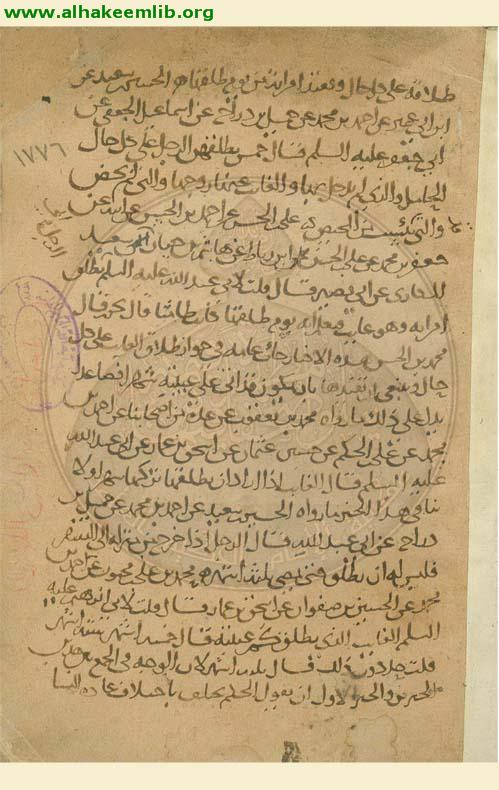 www.alhakeemlib.org
طلاقه على كل حال وتعتد امرأته من يوم طلقها الحسين بن سعيد عن
ابن ابي عمير عن احمد بن محمد عن جميل بن دراج عن اسماعيل الجعفي عن
ابي جعفر عليه السلم قال خمس يطلقهن الرجل على كل حال
الحامل والتي لم يدخل بها والغائب عنها زوجها والتي لم تحض
والتي يئست من المحيض علي بن الحسن عن احمد بن الحسن عن ابيه عن
١٧٧٦
جعفر بن محمد عن علي بن الحسن بن
الغفاري عن ابي بصير قال قلت لابي عبد الله عليه السلم يطلق
امرأته وهو غائب فيعلم انه يوم طلقها كانت طامثا قال يجوز قال
محمد بن الحسن هذه الاخبار جائت عامة في جواز طلاق الغائب على كل
حال وينبغي ان نقيدها بان يكون قد اتى على غيبته شهر فصاعدا
يدل على ذلك ما رواه محمد بن يعقوب عن عدة من اصحابنا عن احمد بن
محمد عن علي بن الحكم عن حسين بن عثمان عن اسحق بن عمار عن ابي عبد الله
عليه السلم قال الغائب اذا اراد ان يطلقها تركها شهرا ولا
ينافي هذا الخبر ما رواه الحسين بن سعيد عن احمد بن محمد عن جميل بن
دراج عن ابي عبد الله قال الرجل اذا خرج من منزله الى السفر
فليس له ان يطلق حتى يمضي ثلثة اشهر محمد بن علي بن محبوب عن احمد بن
محمد عن الحسين عن صفوان عن اسحق بن عمار قال قلت لابي ابرهيم عليه
السلم الغائب الذي يطلق كم غيبته قال خمسة اشهر ستة اشهر
قلت حد دون ذلك قال ثلثة اشهر لان الوجه في الجمع بين هذين
الخبرين والخبر الاول ان نقول الحكم يختلف باختلاف عادة النسا